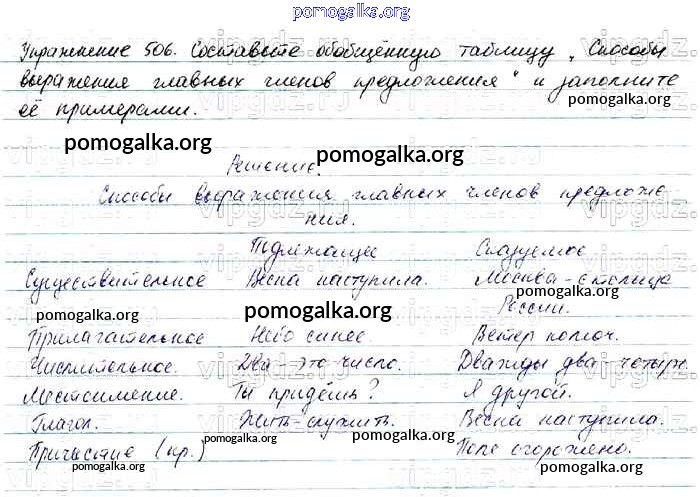 pomogalka.org
Упражнение 506. Составьте обобщённую таблицу „Способы
выражения главных членов предложения“ и заполните
её примерами.
pomogalka.org
pomogalka.org
pomogalka.org
Решение.
Способы выражения главных членов предложе
ния.
Подлежащее Сказуемое
Существительное - Весна наступила. Москва - столица
России.
pomogalka.org
pomogalka.org
Прилагательное Небо синее. Ветер колюч.
Числительное. Два это число. Дважды два четыре
Местоимение. Ты придёшь? Я другой.
pomogalka.org
pomogalka.org
Глагол. Жить - служить. Весна наступила.
Причастие (кр.) Поле огорожено.
pomogalka.org
pomogalka.org
pomogalka.org